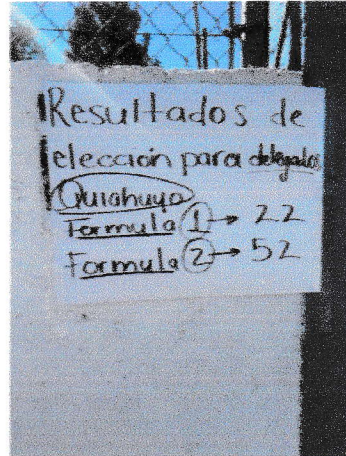 Resultados de
elección para delegados
Quiahuyo
Formula 1 → 22
Formula 2 → 52